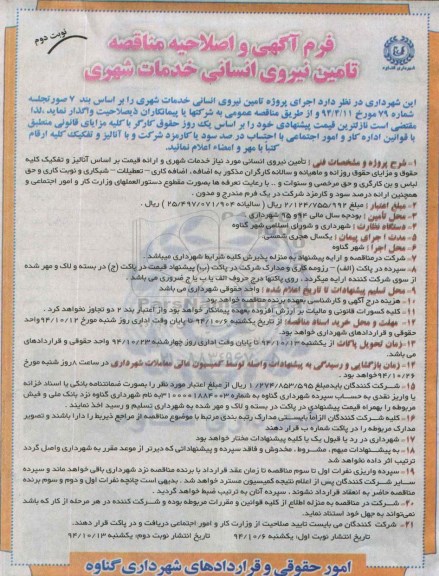 نوبت دوم
فرم آگهی و اصلاحیه مناقصه
تامین نیروی انسانی خدمات شهری
شهرداری گناوه
این شهرداری در نظر دارد اجرای پروژه تامین نیروی انسانی خدمات شهری را بر اساس بند ۷ صورتجلسه
شماره ۷۹ مورخ ۹۴/۲/۱۱ و از طریق مناقصه عمومی به شرکتها یا پیمانکاران ذیصلاحیت واگذار نماید. لذا
مقتضی است نازلترین قیمت پیشنهادی خود را بر اساس یک روز حقوق کارگر با کلیه مزایای قانونی منطبق
با قوانین اداره کار و امور اجتماعی با احتساب در صد سود با کارمزد شرکت و با آنالیز و تفکیک کلیه ارقام
کتبا با مهر و امضاء اعلام نمائید.
۱- شرح پروژه و مشخصات فنی : تأمین نیروی انسانی مورد نیاز خدمات شهری و ارائه قیمت بر اساس آنالیز و تفکیک کلیه
حقوق و مزایای حقوق روزانه و ماهیانه و سالانه کارگران مذکور به اضافه، اضافه کاری – تعطیلات – شبکاری و نوبت کاری و حق
لباس و بن کارگری و حق مرخصی و سنوات و .. با رعایت تعرفه ها بصورت مقطوع دستورالعملهای وزارت کار و امور اجتماعی و
همچنین ارائه درصد سود و کارمزد شرکت در یک فرم مندرج و مدون
۲- مبلغ اعتبار : مبلغ ۲/۱۲۴/۷۵۵/۹۹۲ ریال ( سالیانه ۲۵/۴۹۷/۰۷۱/۹۰۴ ) ریال .
۳- محل تأمین : بودجه سال مالی ۹۴ و ۹۵ شهرداری
۴- دستگاه نظارت : شهرداری و شورای اسلامی شهر گناوه
۵- مدت اجرای پیمان : یکسال هجری شمسی
۶- محل اجرا : شهر گناوه
۷- شرکت درمناقصه و ارایه پیشنهاد به منزله پذیرش کلیه شرایط شهرداری میباشد.
۸- سپرده در پاکت (الف) – رزومه کاری و مدارک شرکت در پاکت (ب) پیشنهاد قیمت در پاکت (ج) در بسته و لاک و مهر شده
از سوی شرکت کننده تهیه میگردد . روی پاکتها درج حروف الف یا ب یا ج ضروری می باشد.
۹- محل تسلیم پیشنهادات تا تاریخ اعلام شده : واحد حقوقی شهرداری می باشد
۱۰- هزینه درج آگهی و کارشناسی بعهده برنده مناقصه خواهد بود
۱۱- کلیه کسورات قانونی و مالیات بر ارزش افزوده بعهده پیمانکار خواهد بود و از اعتبار بند ۲ دو تجاوز نخواهد کرد .
۱۲- مهلت و محل خرید اسناد مناقصه: از تاریخ یکشنبه ۹۴/۱۰/۶ تا پایان وقت اداری روز شنبه مورخ ۹۴/۱۰/۱۲ واحد
حقوقی و قراردادهای شهرداری خواهد بود.
۱۳- زمان تحویل پاکات : از یکشنبه ۹۴/۱۰/۱۳ تا پایان وقت اداری روز چهارشنبه ۹۴/۱۰/۲۳ واحد حقوقی و قراردادهای
می باشد.
۱۴- زمان بازگشایی و رسیدگی به پیشنهادات واصله توسط کمیسیون عالی معاملات شهرداری در ساعت ۸ روز شنبه مورخ
۹۴/۱۰/۲۶ خواهد بود .
۱۵- شرکت کنندگان بایدمبلغ ۱/۲۷۴/۸۵۳/۵۹۵ ریال از مبلغ اعتبار مورد نظر را بصورت ضمانتنامه بانکی یا اسناد خزانه
یا واریز نقدی به حساب سپرده شهرداری گناوه به شماره ۳۱۰۰۰۰۱۸۸۴۰۰۳ بنام شهرداری گناوه نزد بانک ملی و فیش
مربوطه را بهمراه قیمت پیشنهادی در پاکت در بسته و لاک و مهر شده به شهرداری تسلیم و رسید اخذ نمایند .
۱۶- کلیه شرکت کنندگان الزاماً بایستی مدارک رتبه بندی مرتبط با موضوع مناقصه از مراجع ذیربط را دارا باشند و تصویر
مدارک مربوطه را در پاکت شماره ب قرار دهند
۱۷- شهرداری در رد یا قبول یک یا کلیه پیشنهادات مختار خواهد بود
۱۸- به پیشنهادات مبهم ، مشروط ، مخدوش و فاقد سپرده و پیشنهاداتی که دیرتر از موعد مقرر به شهرداری واصل گردد
ترتیب اثر داده نخواهد شد
۱۹- سپرده واریزی نفرات اول تا سوم مناقصه تا زمان عقد قرارداد با برنده مناقصه نزد شهرداری باقی خواهد ماند و سپرده
سایر شرکت کنندگان پس از اعلام نتیجه کمیسیون مسترد خواهد شد . بدیهی است چنانچه نفرات اول و دوم و سوم برنده
مناقصه حاضر به انعقاد قرارداد نشوند . سپرده آنان به ترتیب ضبط خواهد گردید .
۲۰- شرکت در مناقصه به منزله اطلاع از کلیه قوانین و مقررات مربوطه بوده و شرکت کننده در هر مرحله از کار که باشد
نمی‌تواند به جهل خود استناد نماید.
۲۱- شرکت کنندگان می بایست تایید صلاحیت از وزارت کار و امور اجتماعی دریافت و در پاکت قرار دهند.
تاریخ انتشار نوبت اول: یکشنبه ۹۴/۱۰/۶ تاریخ انتشار نوبت دوم: یکشنبه ۹۴/۱۰/۱۳
امور حقوقی و قراردادهای شهرداری گناوه